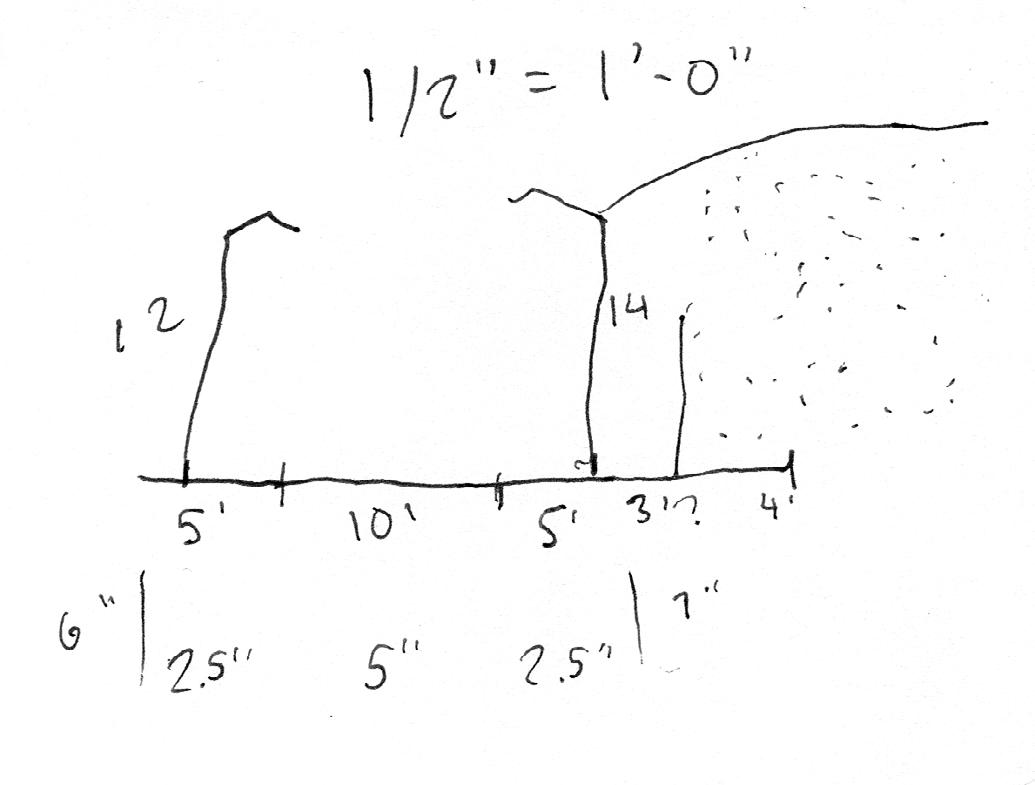 1/2" = 1'-0"
12
14
5' 10' 5' 3'? 4'
6" 2.5" 5" 2.5" 7"